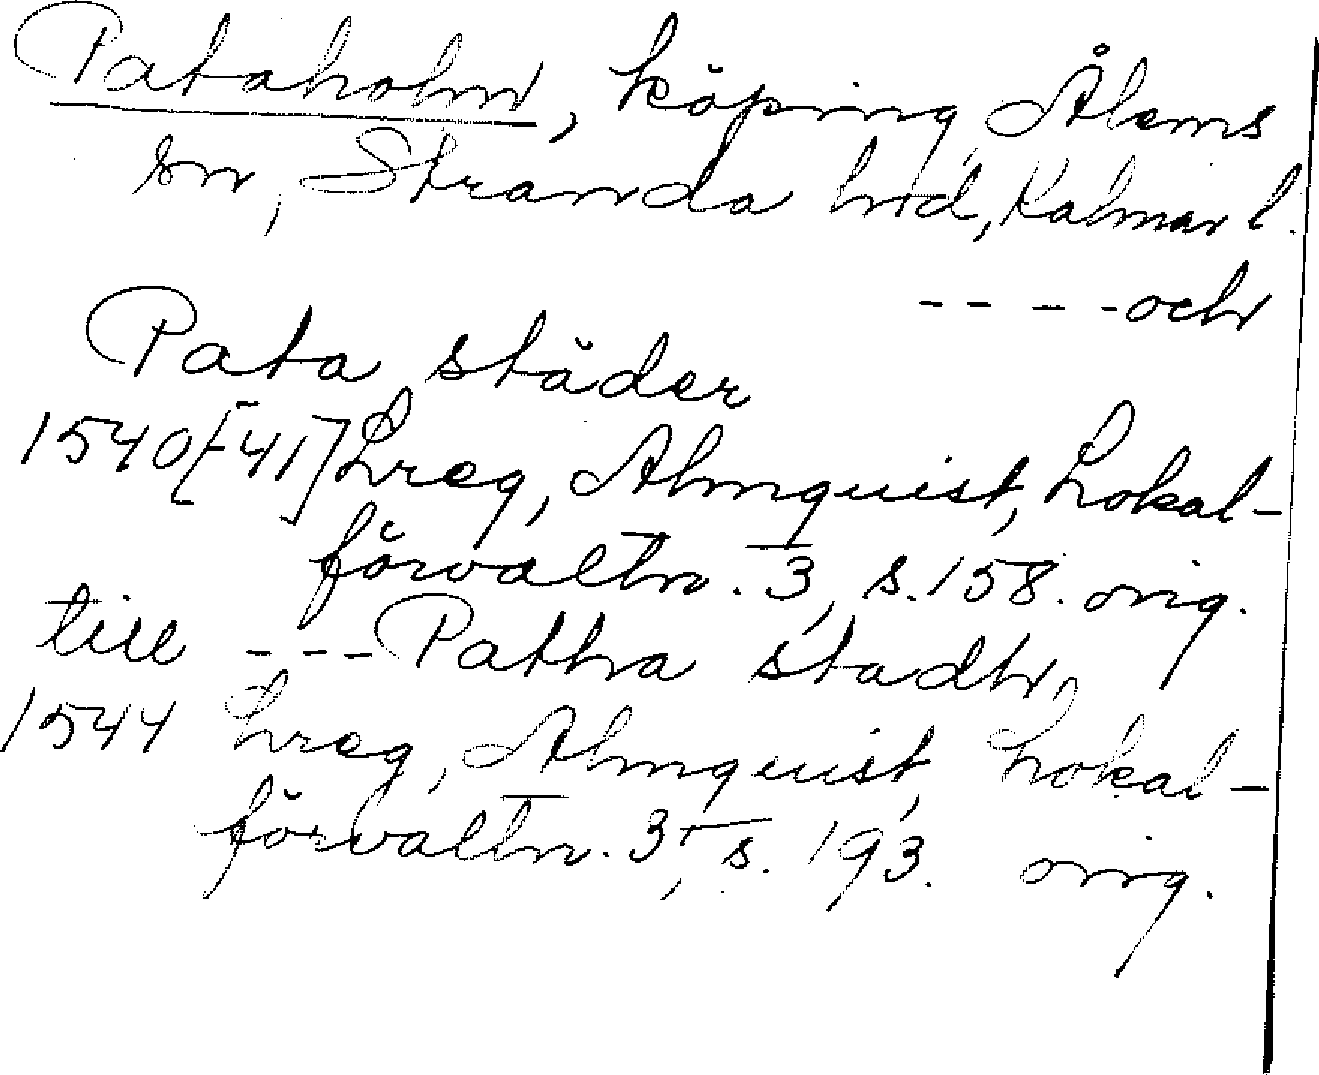 Pataholm, köping, Ålems
sn, Stranda hrd, Kalmar l.
- - - - och
Pata städer
1540[-41] Lreg, Almquist, Lokal-
förvaltn. 3, s. 158. orig.
till - - - Patha stadh,
1544 Lreg, Almquist, Lokal-
förvaltn. 3, s. 193. orig.